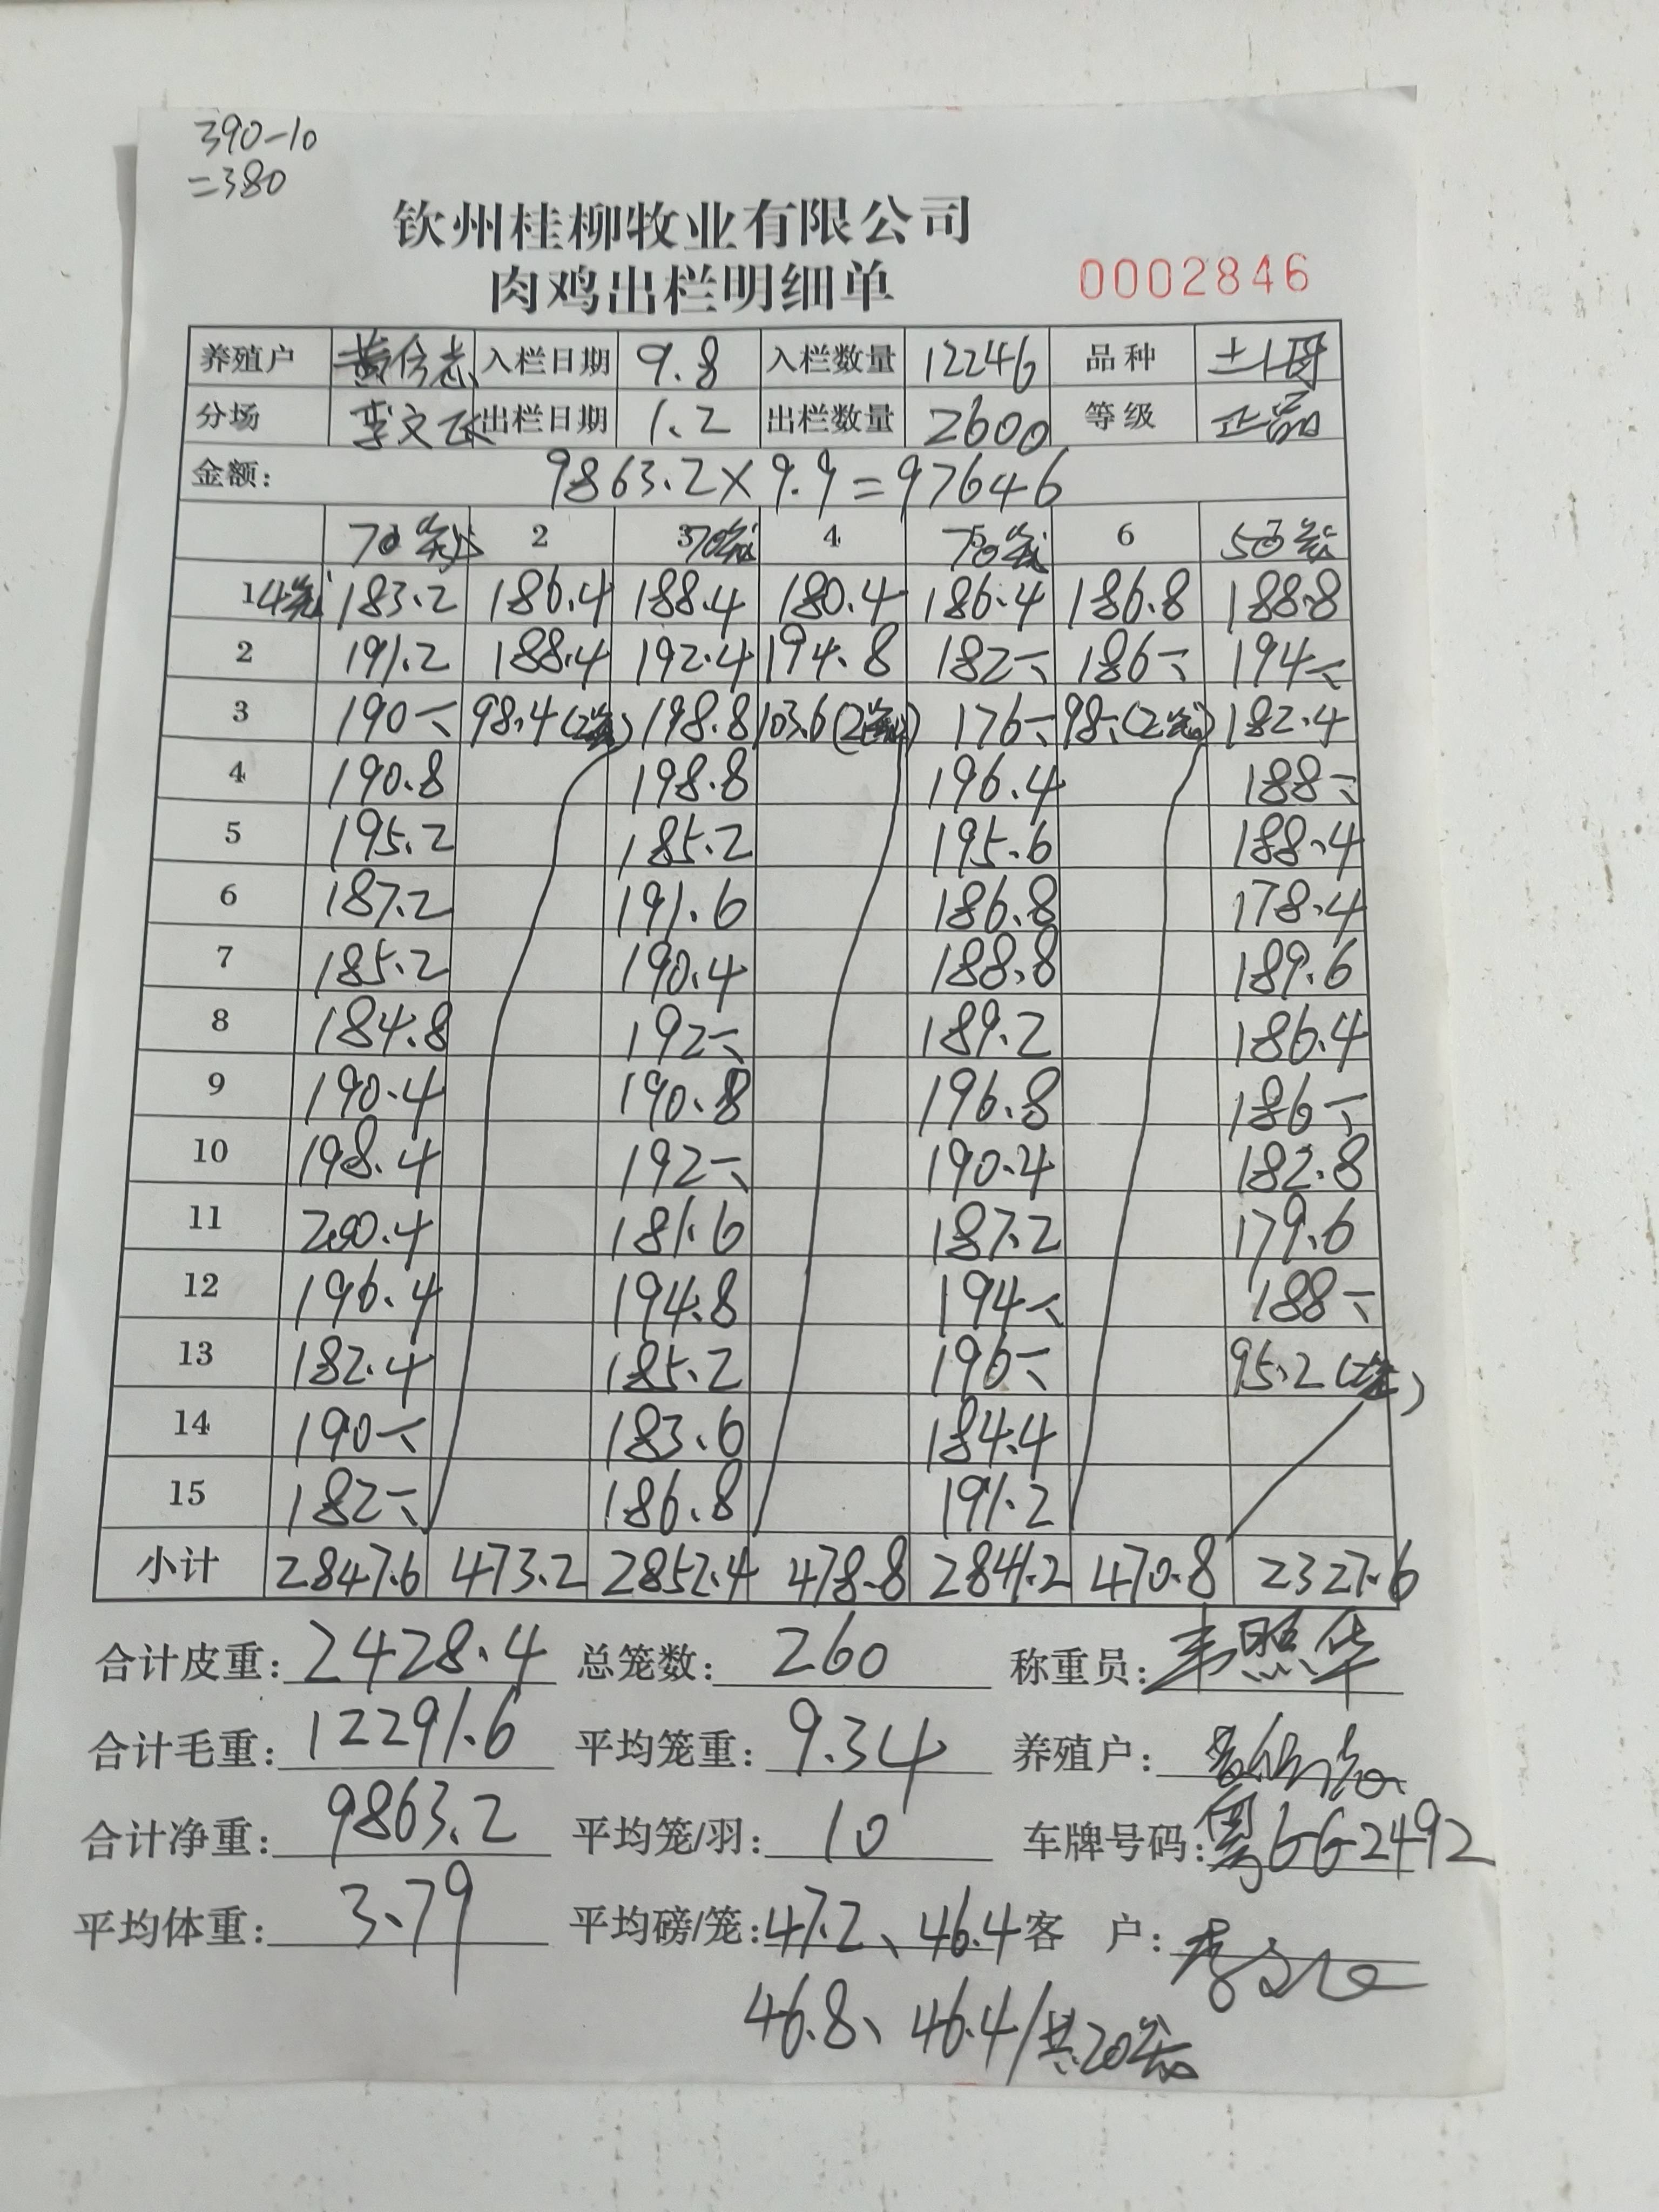 390-10
=380
钦州桂柳牧业有限公司
肉鸡出栏明细单 0002846
养殖户 黄信志 入栏日期 9.8 入栏数量 12246 品种 土1母
分场 李文飞 出栏日期 1.2 出栏数量 2600 等级 正品
金额: 9863.2×9.9=97646
70笼 2 3 70笼 4 5 70笼 6 7 50笼
1 4笼 183.2 186.4 188.4 180.4 186.4 186.8 188.8
2 191.2 188.4 192.4 194.8 182.- 186.- 194.-
3 190.- 98.4(2笼) 198.8 103.6(2笼) 176.- 98.-(2笼) 182.4
4 190.8 198.8 196.4 188.-
5 195.2 185.2 195.6 188.4
6 187.2 191.6 186.8 178.4
7 185.2 190.4 188.8 189.6
8 184.8 192.- 189.2 186.4
9 190.4 190.8 196.8 186.-
10 198.4 192.- 190.4 182.8
11 200.4 181.6 187.2 179.6
12 196.4 194.8 194.- 188.-
13 182.4 185.2 196.- 95.2(2笼)
14 190.- 183.6 184.4
15 182.- 186.8 191.2
小计 2847.6 473.2 2852.4 478.8 2841.2 470.8 2327.6
合计皮重: 2428.4 总笼数: 260 称重员: 韦照华
合计毛重: 12291.6 平均笼重: 9.34 养殖户:
合计净重: 9863.2 平均笼/羽: 10 车牌号码: 粤GG2492
平均体重: 3.79 平均磅/笼: 47.2、46.4 客 户:
46.8、46.4/共20笼